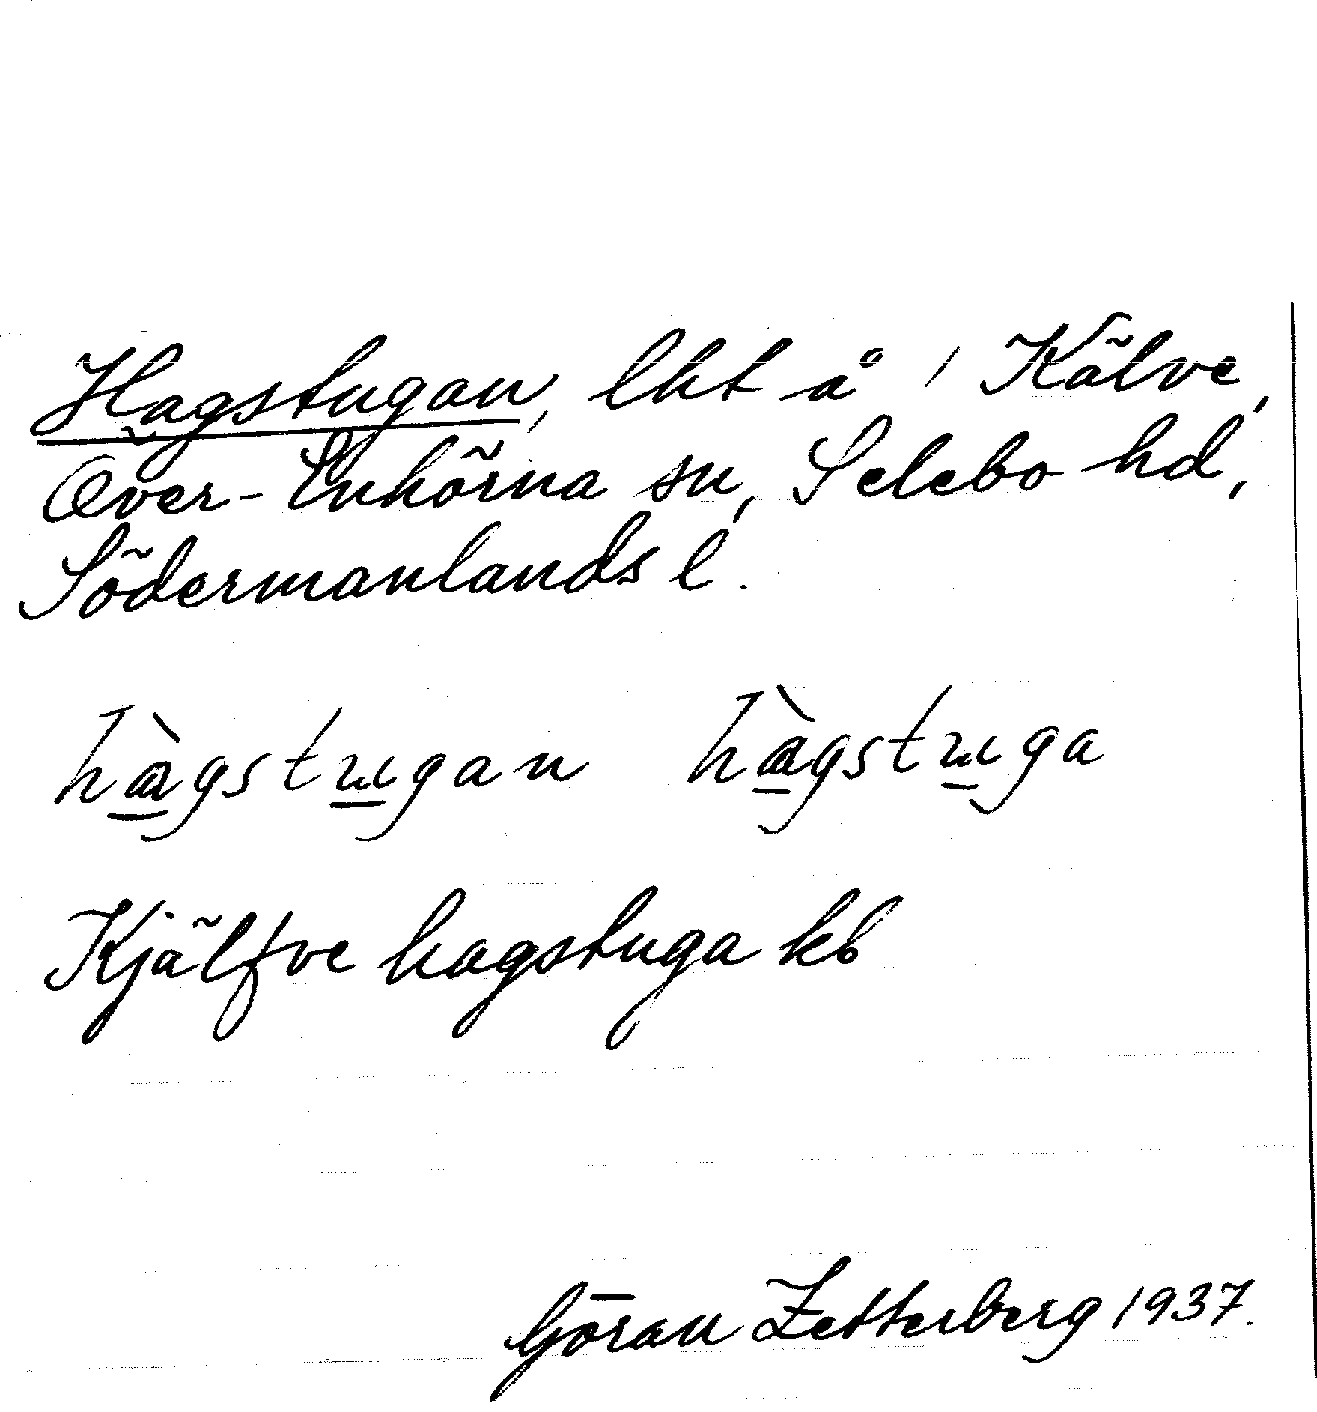 Hagstugan, lht å 1 Kälve,
Över-Enhörna sn, Selebo hd,
Södermanlands l.
hàgstugan hàgstuga
Kjälfve hagstuga kb
Göran Zetterberg 1937.